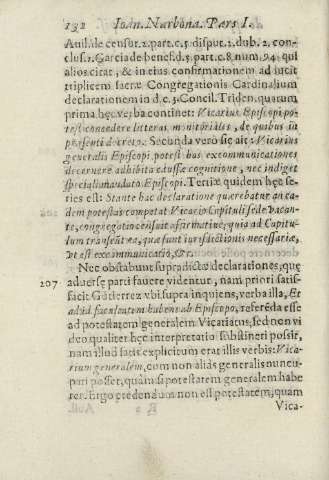 132 Ioan. Narbona. Pars I.
Auil. de censur. 2. part. c. 5. disput. 2. dub. 2. con-
clus. 1. Garcia de benef. d. 5. part. c. 8. num. 94. qui
alios citat, & in eius confirmationem ad iucit
triplicem sacræ Congregationis Cardinalium
declarationem in d. c. 3. Concil. Triden. quarum
prima hęc verba continet: Vicarius Episcopi po-
test concedere litteras monitoriales, de quibus in
presenti decreto. Secunda verò sic ait: Vicarius
generalis Episcopi potest has excommunicationes
decernere adhibita causæ cognitione, nec indiget
speciali mandato Episcopi. Tertiæ quidem hęc se-
ries est: Stante hac declaratione quærebatur an ea-
dem potestas competat Vicario Capituli sede vacan-
te, congregatio censuit affirmatiuè, quia ad Capitu-
lum transeunt ea, quæ sunt iurisdictionis necessariæ,
vt est excommunicatio, &c.
Nec obstabunt supradictæ declarationes, quę
207 aduersę parti fauere videntur, nam priori satis-
facit Gutierrez vbi supra inquiens, verba illa, Et
ad id facultatem habens ab Episcopo, referēda esse
ad potestatem generalem Vicariatus, sed non vi
deo qualiter hęc interpretatio substineri possit,
nam illud satis explicitum erat illis verbis: Vica-
rium generalem, cum non aliàs generalis nuncu-
pari posset, quam si potestatem generalem habe
ret. Ergo credendum non est potestatem, quam
Vica-